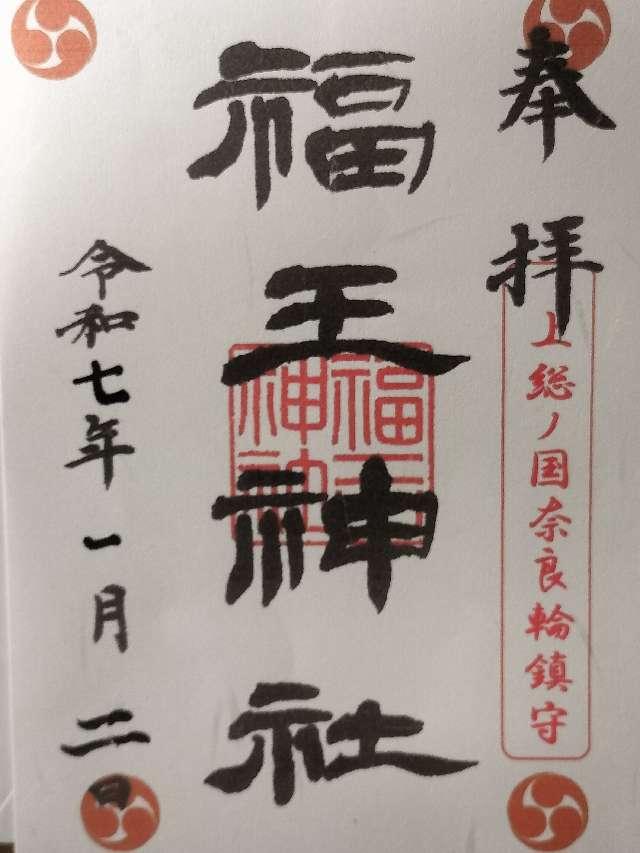 奉拝
上総ノ国奈良輪鎮守
福王神社
福王
神社
令和七年一月二日